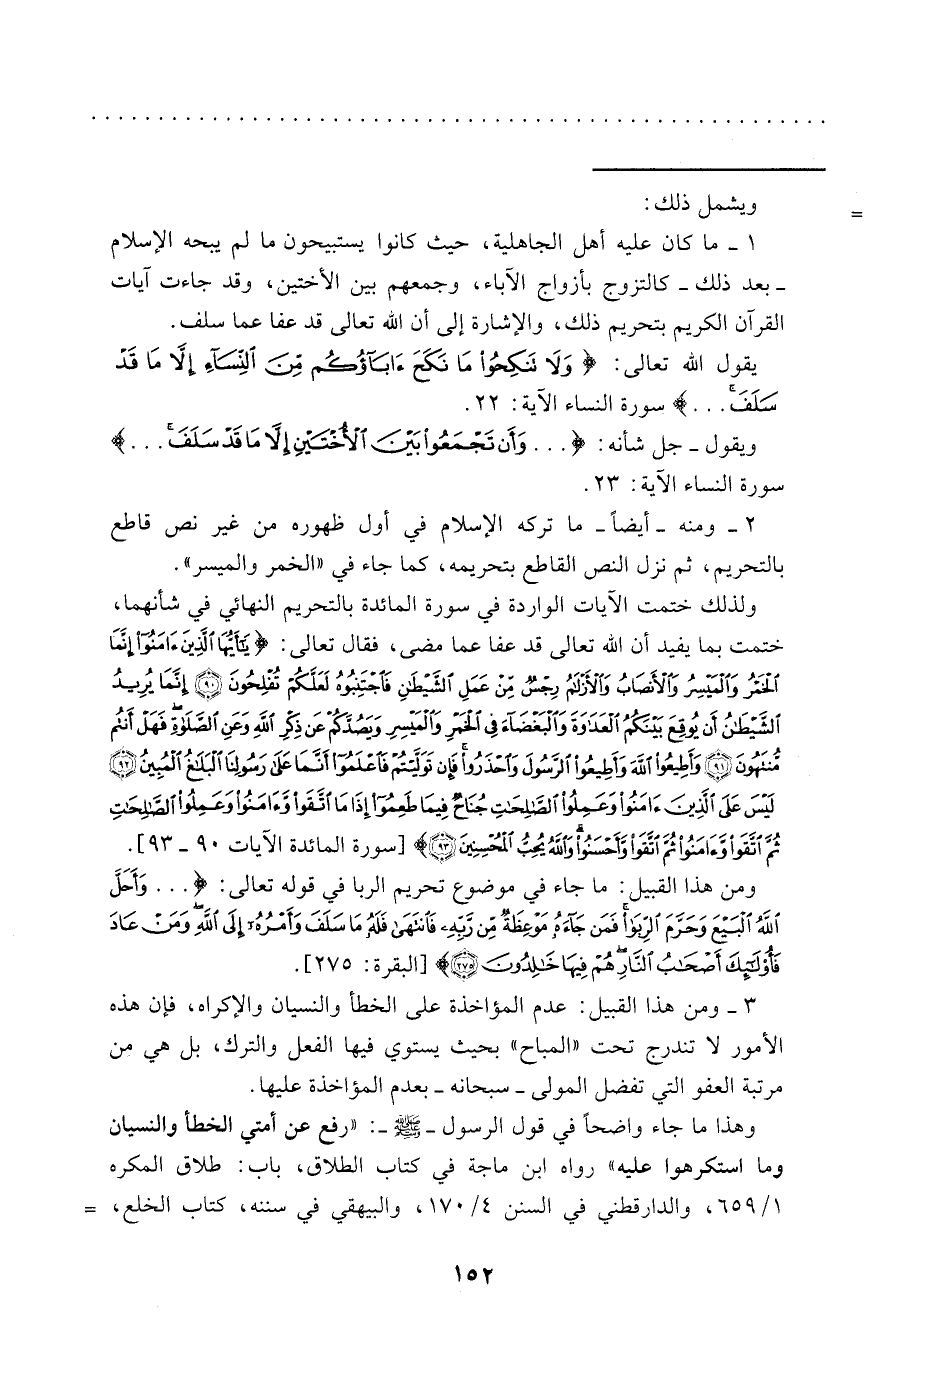 . . . . . . . . . . . . . . . . . . . . . . . . . . . . . . . . . . . . . . . . . . . . . . . . . . . . . . .
= ويشمل ذلك:
١ ـ ما كان عليه أهل الجاهلية، حيث كانوا يستبيحون ما لم يبحه الإسلام
ـ بعد ذلك ـ كالتزوج بأزواج الآباء، وجمعهم بين الأختين، وقد جاءت آيات
القرآن الكريم بتحريم ذلك، والإشارة إلى أن الله تعالى قد عفا عما سلف.
يقول الله تعالى: ﴿ وَلَا تَنكِحُوا۟ مَا نَكَحَ ءَابَآؤُكُم مِّنَ ٱلنِّسَآءِ إِلَّا مَا قَدْ
سَلَفَ ۚ . . . ﴾ سورة النساء الآية: ٢٢.
ويقول ـ جل شأنه: ﴿ . . . وَأَن تَجْمَعُوا۟ بَيْنَ ٱلْأُخْتَيْنِ إِلَّا مَا قَدْ سَلَفَ ۚ . . . ﴾
سورة النساء الآية: ٢٣.
٢ ـ ومنه ـ أيضاً ـ ما تركه الإسلام في أول ظهوره من غير نص قاطع
بالتحريم، ثم نزل النص القاطع بتحريمه، كما جاء في «الخمر والميسر».
ولذلك ختمت الآيات الواردة في سورة المائدة بالتحريم النهائي في شأنهما،
ختمت بما يفيد أن الله تعالى قد عفا عما مضى، فقال تعالى: ﴿ يَٰٓأَيُّهَا ٱلَّذِينَ ءَامَنُوٓا۟ إِنَّمَا
ٱلْخَمْرُ وَٱلْمَيْسِرُ وَٱلْأَنصَابُ وَٱلْأَزْلَٰمُ رِجْسٌ مِّنْ عَمَلِ ٱلشَّيْطَٰنِ فَٱجْتَنِبُوهُ لَعَلَّكُمْ تُفْلِحُونَ ﴿٩٠﴾ إِنَّمَا يُرِيدُ
ٱلشَّيْطَٰنُ أَن يُوقِعَ بَيْنَكُمُ ٱلْعَدَٰوَةَ وَٱلْبَغْضَآءَ فِى ٱلْخَمْرِ وَٱلْمَيْسِرِ وَيَصُدَّكُمْ عَن ذِكْرِ ٱللَّهِ وَعَنِ ٱلصَّلَوٰةِ ۖ فَهَلْ أَنتُم
مُّنتَهُونَ ﴿٩١﴾ وَأَطِيعُوا۟ ٱللَّهَ وَأَطِيعُوا۟ ٱلرَّسُولَ وَٱحْذَرُوا۟ ۚ فَإِن تَوَلَّيْتُمْ فَٱعْلَمُوٓا۟ أَنَّمَا عَلَىٰ رَسُولِنَا ٱلْبَلَٰغُ ٱلْمُبِينُ ﴿٩٢﴾
لَيْسَ عَلَى ٱلَّذِينَ ءَامَنُوا۟ وَعَمِلُوا۟ ٱلصَّٰلِحَٰتِ جُنَاحٌ فِيمَا طَعِمُوٓا۟ إِذَا مَا ٱتَّقَوا۟ وَّءَامَنُوا۟ وَعَمِلُوا۟ ٱلصَّٰلِحَٰتِ
ثُمَّ ٱتَّقَوا۟ وَّءَامَنُوا۟ ثُمَّ ٱتَّقَوا۟ وَّأَحْسَنُوا۟ ۗ وَٱللَّهُ يُحِبُّ ٱلْمُحْسِنِينَ ﴿٩٣﴾ ﴾ [سورة المائدة الآيات ٩٠ ـ ٩٣].
ومن هذا القبيل: ما جاء في موضوع تحريم الربا في قوله تعالى: ﴿ . . . وَأَحَلَّ
ٱللَّهُ ٱلْبَيْعَ وَحَرَّمَ ٱلرِّبَوٰا۟ ۚ فَمَن جَآءَهُۥ مَوْعِظَةٌ مِّن رَّبِّهِۦ فَٱنتَهَىٰ فَلَهُۥ مَا سَلَفَ وَأَمْرُهُۥٓ إِلَى ٱللَّهِ ۖ وَمَنْ عَادَ
فَأُو۟لَٰٓئِكَ أَصْحَٰبُ ٱلنَّارِ ۖ هُمْ فِيهَا خَٰلِدُونَ ﴿٢٧٥﴾ ﴾ [البقرة: ٢٧٥].
٣ ـ ومن هذا القبيل: عدم المؤاخذة على الخطأ والنسيان والإكراه، فإن هذه
الأمور لا تندرج تحت «المباح» بحيث يستوي فيها الفعل والترك، بل هي من
مرتبة العفو التي تفضل المولى ـ سبحانه ـ بعدم المؤاخذة عليها.
وهذا ما جاء واضحاً في قول الرسول ـ ﷺ ـ: «رفع عن أمتي الخطأ والنسيان
وما استكرهوا عليه» رواه ابن ماجة في كتاب الطلاق، باب: طلاق المكره
١/ ٦٥٩، والدارقطني في السنن ٤/ ١٧٠، والبيهقي في سننه، كتاب الخلع، =
١٥٢